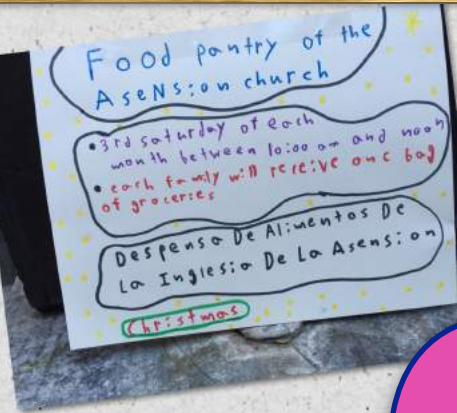 Food pantry of the
AseNsion church
• 3rd saturday of each
month between 10:00 am and noon
• each family will receive one bag
of groceries
Despensa De Alimentos De
La Inglesia De La Asension
Christmas